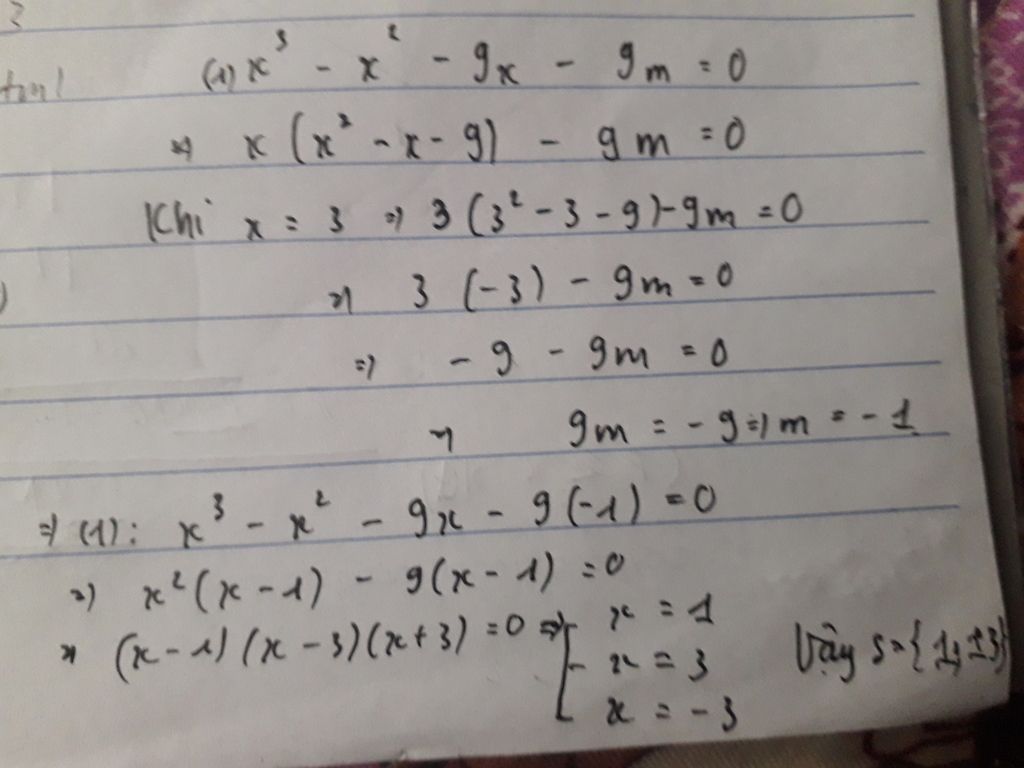 3
(1) x³ - x² - 9x - 9m = 0
=> x (x² - x - 9) - 9m = 0
Khi x = 3 => 3 (3² - 3 - 9) - 9m = 0
=> 3 (-3) - 9m = 0
=> - 9 - 9m = 0
=> 9m = - 9 => m = - 1
=> (1): x³ - x² - 9x - 9 (-1) = 0
=> x² (x - 1) - 9 (x - 1) = 0
=> (x - 1) (x - 3) (x + 3) = 0 => [ x = 1
x = 3 Vậy S = { 1; ±3}
x = - 3